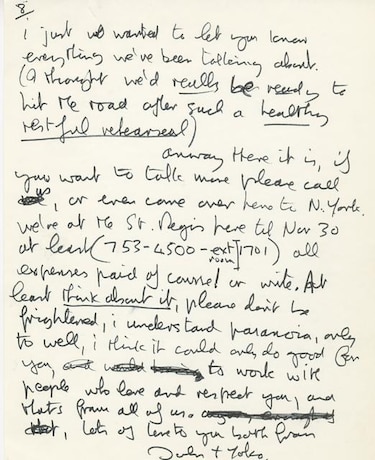 8
i just wanted to let you know
everything we've been talking about.
(I thought we'd really be ready to
hit the road after such a healthy
restful rehearsal)
anyway there it is, if
you want to talk more please call
us, or even come over here to N. York.
we're at the St. Regis here til Nov 30
at least (753-4500-ext room] 1701) all
expenses paid of course! or write. At
least think about it, please don't be
frightened, i understand paranoia, only
to well, i think it could only do good for
you, to work with
people who love and respect you, and
that's from all of us.
lots of love to you both from
John + Yoko.